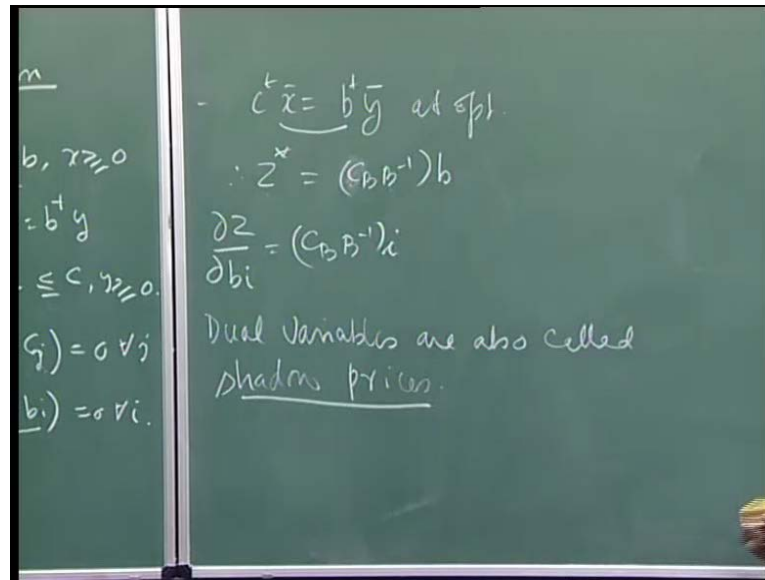 m
b, x ≥ 0
= bᵗ y
≤ C, y ≥ 0.
Cj) = 0 ∀ j
bi) = 0 ∀ i.
- cᵗ x̄ = bᵗ ȳ at opt.
∴ Z* = (C_B B⁻¹) b
∂Z/∂bi = (C_B B⁻¹)i
Dual Variables are also called
shadow prices.